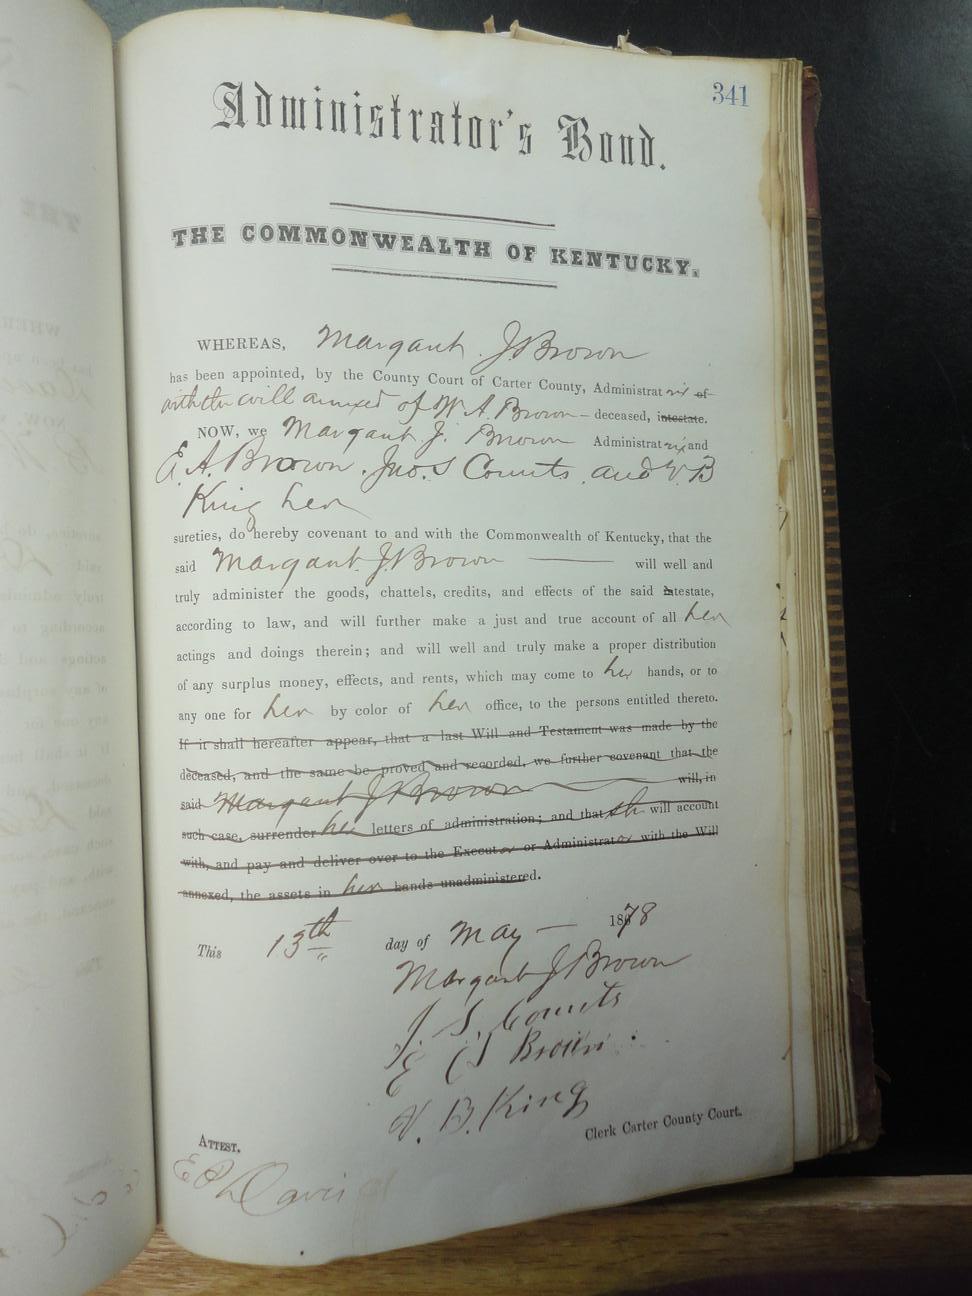 341
Administrator's Bond.
THE COMMONWEALTH OF KENTUCKY.
WHEREAS, Margaret J Brown
has been appointed, by the County Court of Carter County, Administratrix of
with the will annexed of W. A. Brown — deceased, intestate.
NOW, we Margaret J. Brown Administratrix and
E. A. Brown, Jno. S Counts, and V. B
King her
sureties, do hereby covenant to and with the Commonwealth of Kentucky, that the
said Margaret J Brown will well and
truly administer the goods, chattels, credits, and effects of the said intestate,
according to law, and will further make a just and true account of all her
actings and doings therein; and will well and truly make a proper distribution
of any surplus money, effects, and rents, which may come to her hands, or to
any one for her by color of her office, to the persons entitled thereto.
If it shall hereafter appear, that a last Will and Testament was made by the
deceased, and the same be proved and recorded, we further covenant that the
said Margaret J Brown will, in
such case, surrender her letters of administration; and that sh will account
with, and pay and deliver over to the Executor or Administrator with the Will
annexed, the assets in her hands unadministered.
This 13th day of May — 1878
Margaret J Brown
J. S. Counts
E A Brown
V. B. King
Clerk Carter County Court.
ATTEST.
Davis